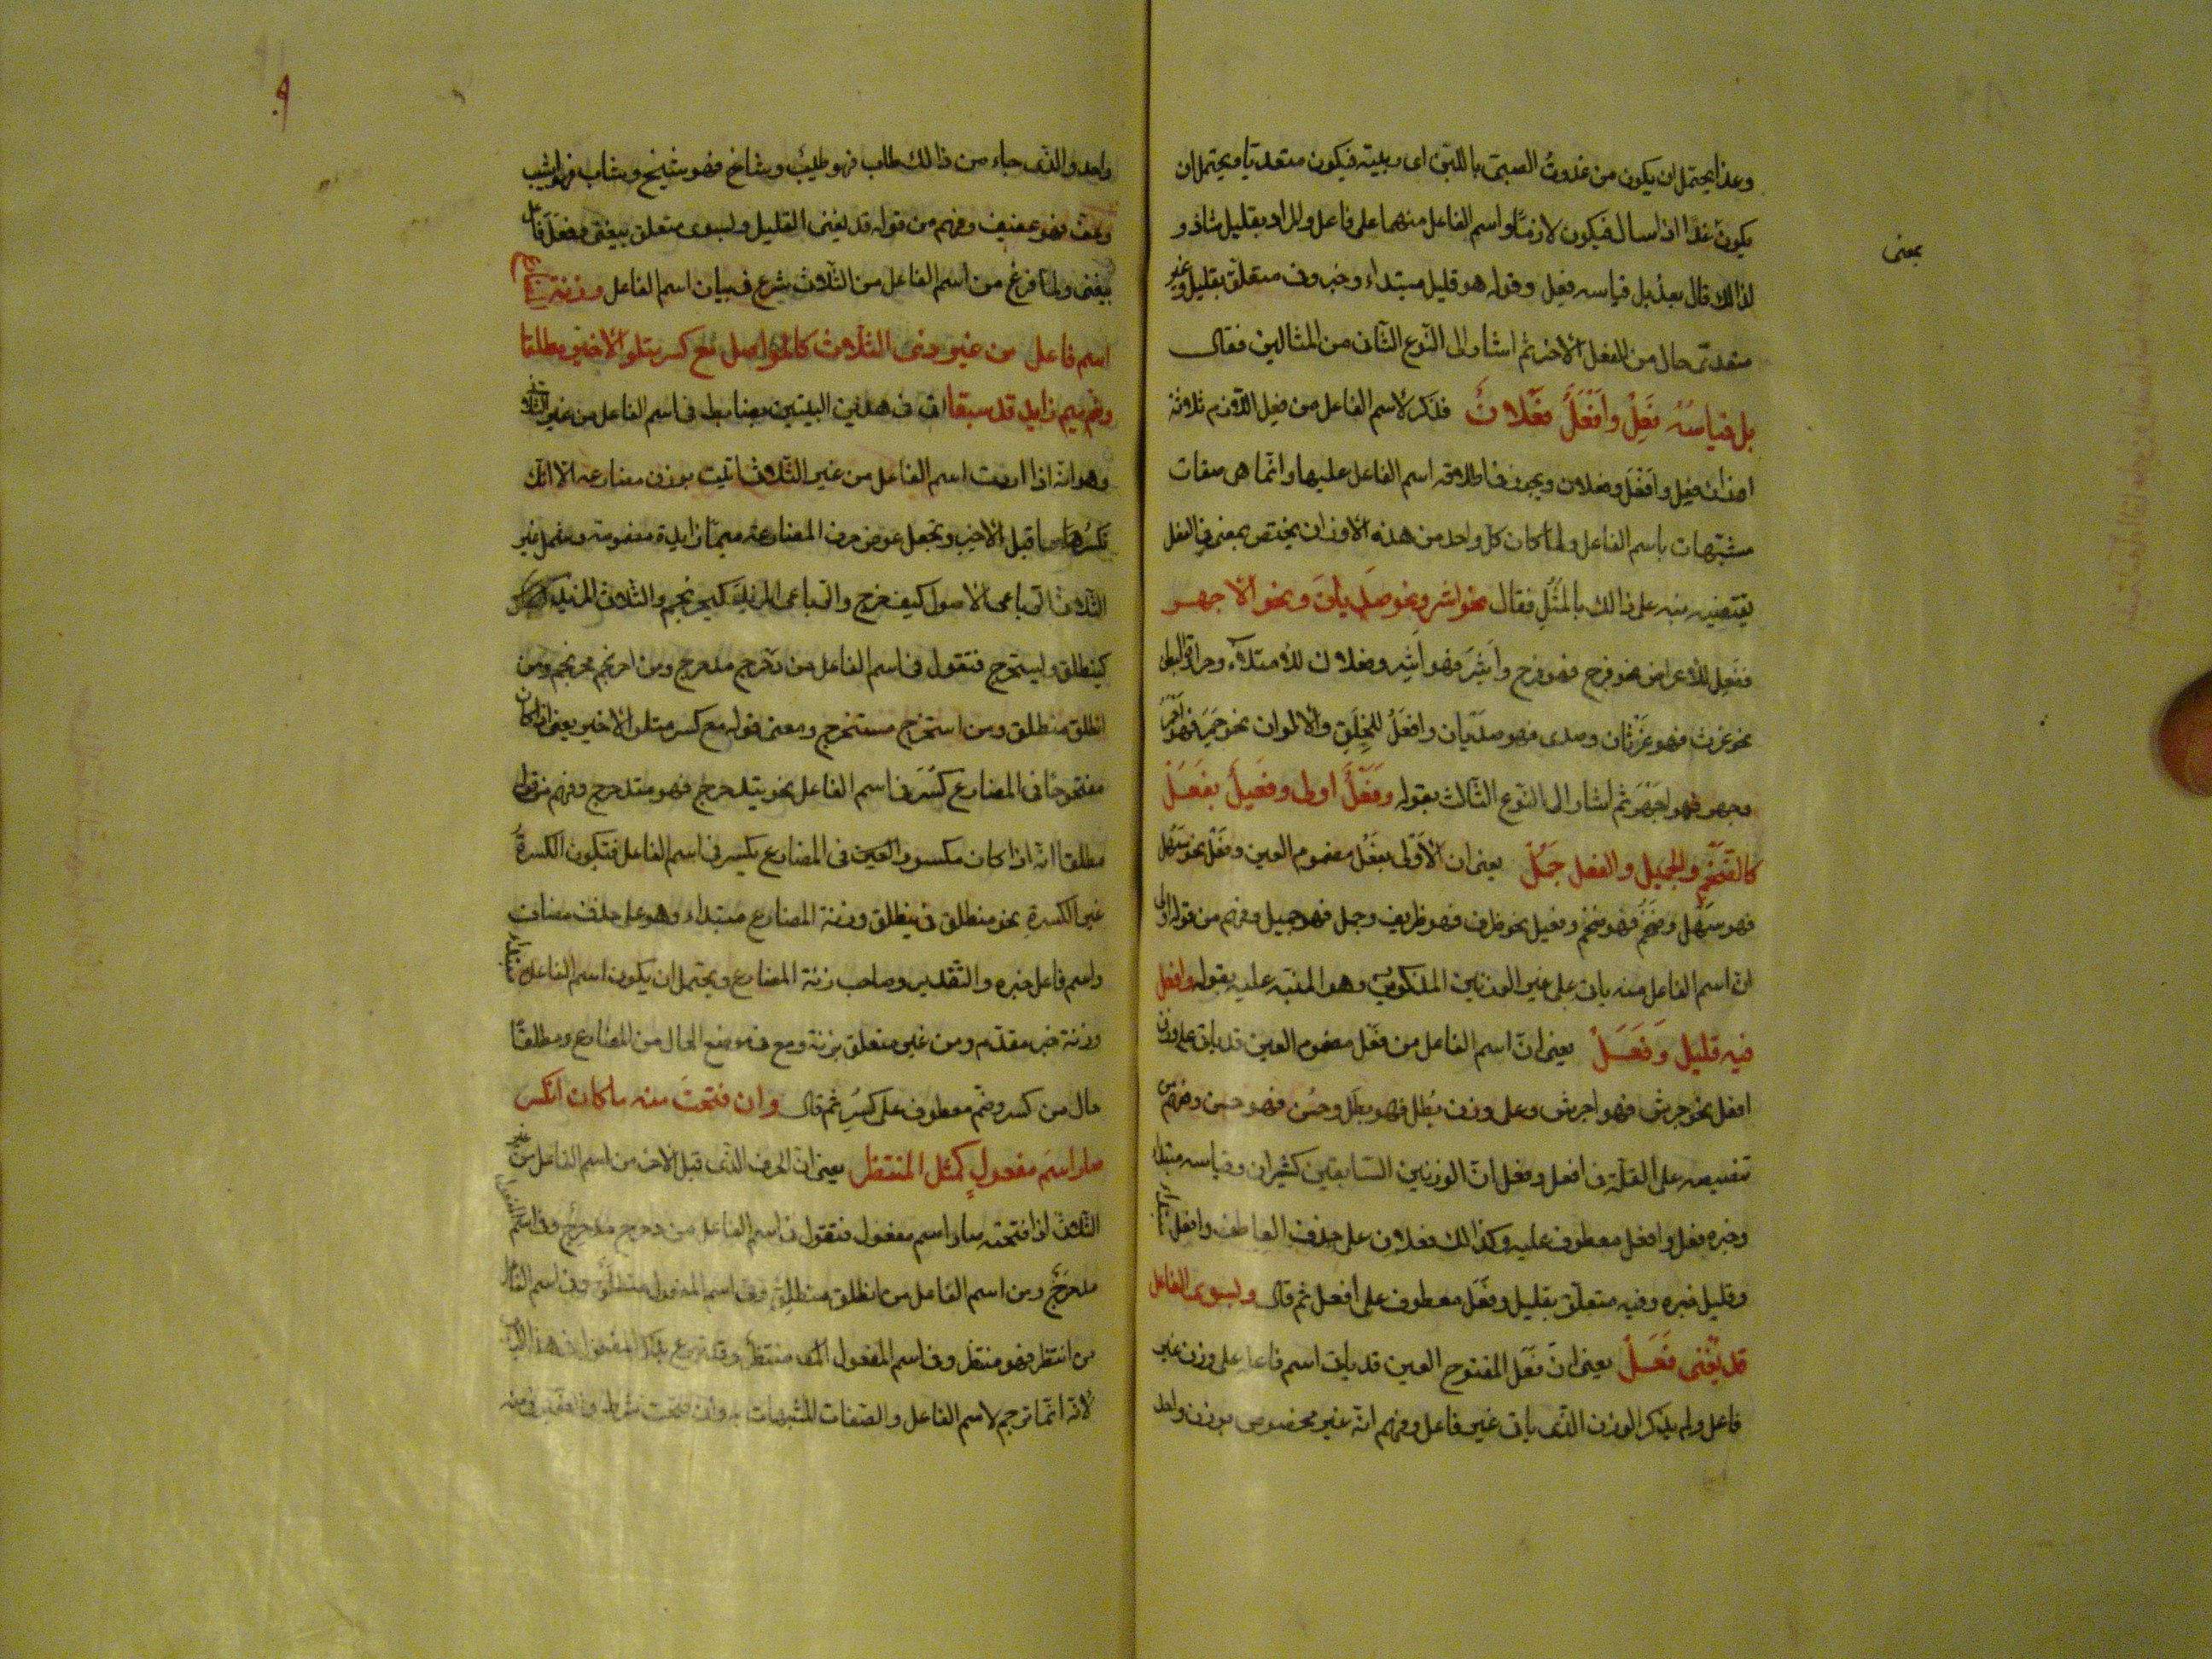 وغذا يحتمل ان يكون من غذوتُ الصبىّ باللبن اى ربيته فيكون متعديا ويحتمل ان
بمعنى
يكون غذّا اذا سال فيكون لازمًا واسم الفاعل منهما على فاعل والمراد بقليل شاذ و
لذالك قال بعد بل قياسه فعِل وقوله هو قليل مبتداء وخبر وفى متعلّق بقليل وغير
متعدىّ حال من الفعل الاخير ثم اشار الى النّوع الثّانى من المثالين فقال
بل قياسُهُ فَعِلْ وأَفْعَلُ فَعْلَانُ فذكر لاسم الفاعل من فعِل اللّازم ثلاثة
اوزان فعِل وأفعَل وفعلان ويجوز فى اطلاقه اسم الفاعل عليها وانّما هى صفات
مشبّهات باسم الفاعل ولمّا كان كلّ واحد من هذه الاوزان يختص بمعنى فى الفعل
يقتضيه نبه على ذالك بالمُثُل فقال نحو اشِرٍ ونحو صديانَ ونحو الاجهر
ففَعِل للاعراض نحو فرح فهو فرح وأشِرَ فهو أشِر وفعلان للامتلاء وحرارة البطن
نحو غرث فهو غرثان وصدى فهو صديان وافعَلُ للخِلَقِ والالوان نحو حمِر فهو أحمر
وجهر فهو اجهَر ثم اشار الى النّوع الثّالث بقوله وفَعْلٌ اولى وفعيلٌ بفَعُلْ
كالضّخم والجميل والفعل جَمُلْ يعنى ان الأولى بفعُل مضموم العين وفعْل نحو سهُل
فهو سهْل وضخُم فهو ضخْم وفعيل نحو ظرف فهو ظريف وجمل فهو جميل وفهم من قوله اولى
انّ اسم الفاعل منه يأتى على غير الوزنين المذكورين وهو المنبّه عليه بقوله وافعل
فيه قليل وَفَعَلْ يعنى انّ اسم الفاعل من فعُل مضموم العين قد يأتى على وزن
افعل نحو حرش فهو احرش وعلى وزن بَطُل فهو بطَل وحسُن فهو حسن وفهم من
تنصيصه على القلّة فى افعل وفعل انّ الوزنين السّابقين كثيران وقياسه مبتداء
وخبره فعل وافعل معطوف عليه وكذالك فعلان على حذف العاطف وافعل مبتداء
وقليل خبره وفيه متعلّق بقليل وفعَل معطوف على افعل ثم قال وبسوى الفاعل
قد يُغْنى فَعَلْ يعنى انّ فعَل المفتوح العين قد يأتى اسم فاعله على وزن غير
فاعل ولم يذكر الوزن الذّى يأتى غير فاعل وفهم انّه غير مخصوص بوزن واحد
٩
واحد والذّى جاء من ذالك طاب فهو طيّب وشاخ فهو شيخ وشاب فهو اشيب
وعفّ فهو عفيف وفهم من قوله قد يغنى القليل وبسوى متعلق بيغنى وفعَل فاعل
يغنى ولمّا فرغ من اسم الفاعل من الثّلاثى شرع فى بيان اسم الفاعل وزنة
اسم فاعل من غير ذى الثّلاث كالمواصل مع كسر متلو الاخير مطلقا
وضم ميم زايد قد سبقا اى فى هذين البيتين ضابط فى اسم الفاعل من غير الثلاثى
وهو انّه اذا اردت اسم الفاعل من غير الثّلاثى أتيت بوزن مضارعه الا انّك
تكسر ما قبل الاخير وتجعل عوض حرف المضارعة ميمًا زايدة مضمومة وشمل غير
الثّلاثى الرّباعى الاصول كيدحرج والرّباعى المزيد كيحرنجم والثّلاثى المزيد
كينطلق ويستخرج فتقول فى اسم الفاعل من دحرج مدحرج ومن احرنجم محرنجم ومن
انطلق منطلق ومن استخرج مستخرج ومعنى قوله مع كسر متلو الاخير يعنى اذا كان
مفتوحًا فى المضارع كُسِرَ فى اسم الفاعل نحو يتدحرج فهو متدحرج وفهم من قوله
مطلقا انّه اذا كان مكسور العين فى المضارع يكسر فى اسم الفاعل فتكون الكسرةُ
غير الكسرةِ نحو منطلق فى ينطلق وزنة المضارع مبتداء وهو على حذف مضاف
واسم فاعل خبره والتّقدير وصاحب زنة المضارع ويحتمل ان يكون اسم الفاعل مبتداء
وزنة خبر مقدّم ومن غير متعلق بزنة ومع فى موضع الحال من المضارع ومطلقًا
حال من كسر وضمّ معطوف على كسرِ ثم قال وان فتحتَ منه ما كان انكسر
صار اسمَ مفعولٍ كمثل المنتظر يعنى انّ الحرف الذّى قبل الآخر من اسم الفاعل من غير
الثّلاثى اذا فتحته صار اسم مفعول فتقول فى اسم الفاعل من دحرج مدحرِج وفى اسم المفعول
مدحرَج ومن اسم الفاعل من انطلق منطلِق وفى اسم المفعول منطلَق وفى اسم الفاعل
من انتظر فهو منتظر وفى اسم المفعول منتظَر وقد تبرع بذكر المفعول فى هذا الباب
لانّه انّما ترجم لاسم الفاعل والصّفات المشبهات به وان فتحت شرط